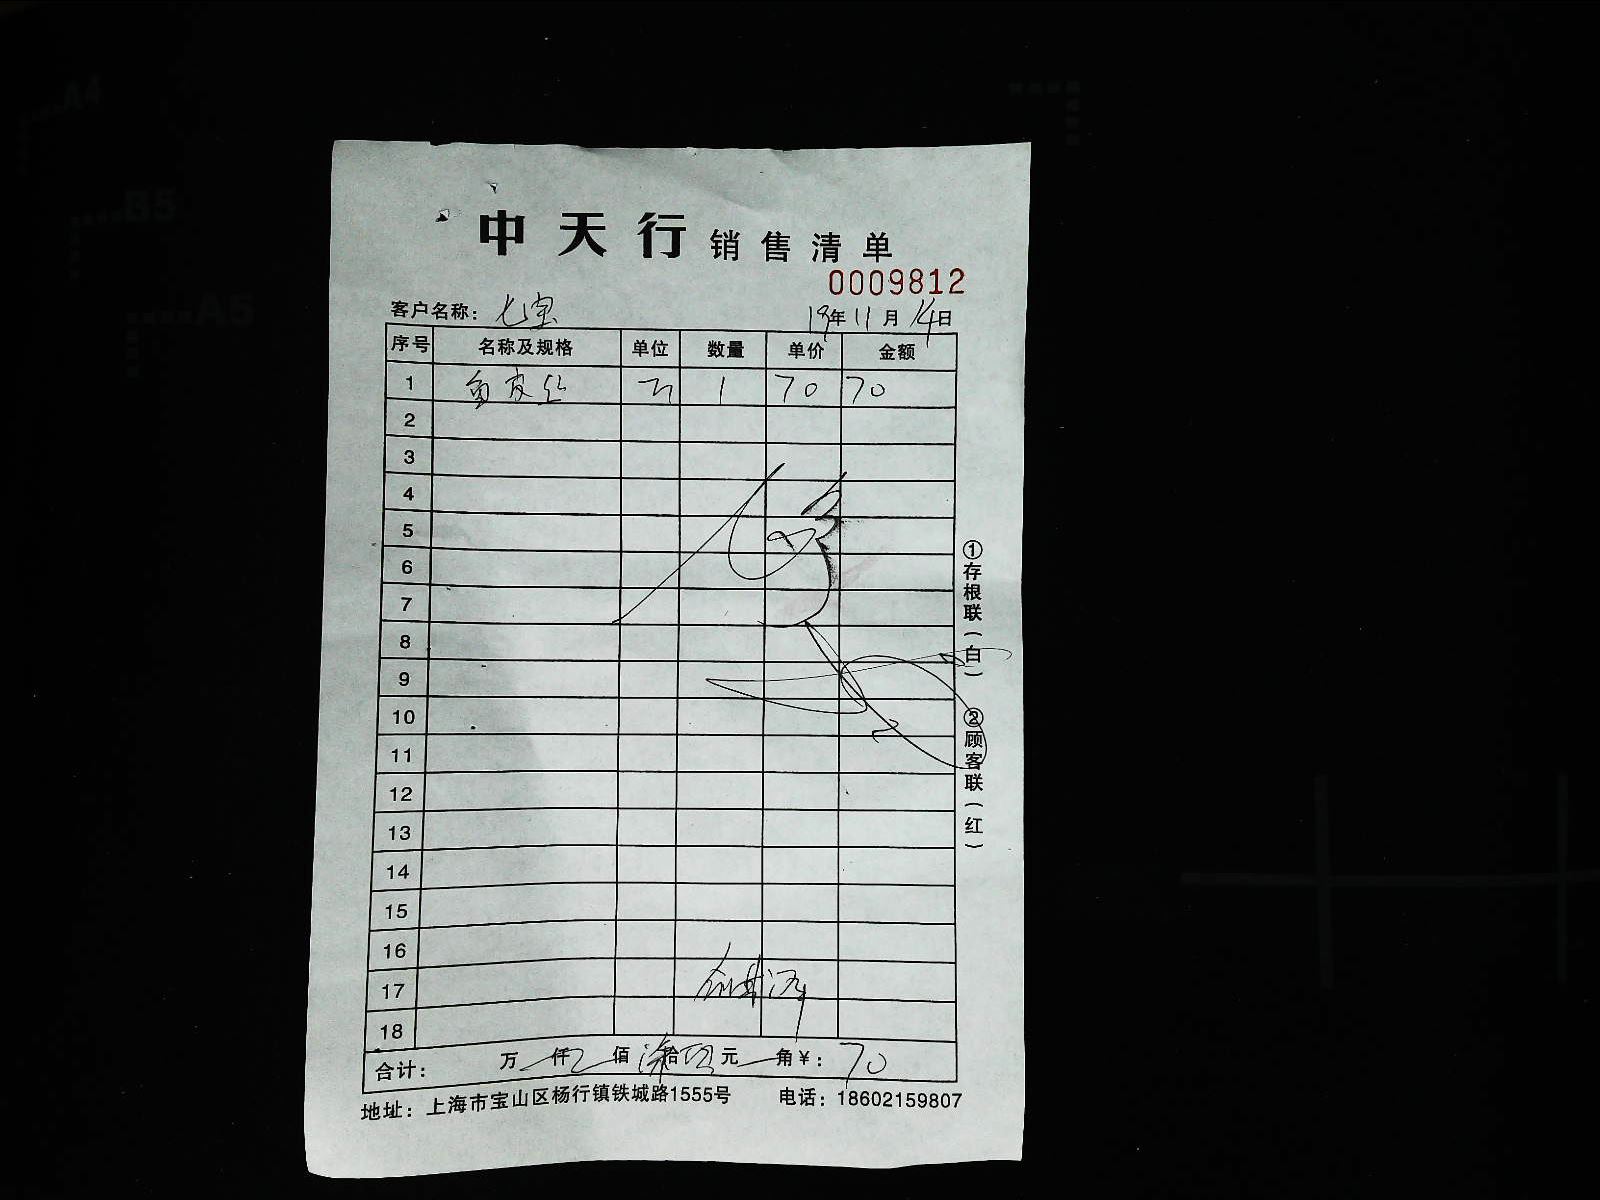 A4
B5
A5
中天行 销售清单
0009812
客户名称：七宝 19年11月14日
序号 名称及规格 单位 数量 单价 金额
1 鱼皮丝 1 70 70
2
3
4
5
6
7
8
9
10
11
12
13
14
15
16
17
18
①存根联(白) ②顾客联(红)
合计： 万 仟 佰 柒拾 元 角￥：70
地址：上海市宝山区杨行镇铁城路1555号 电话：18602159807